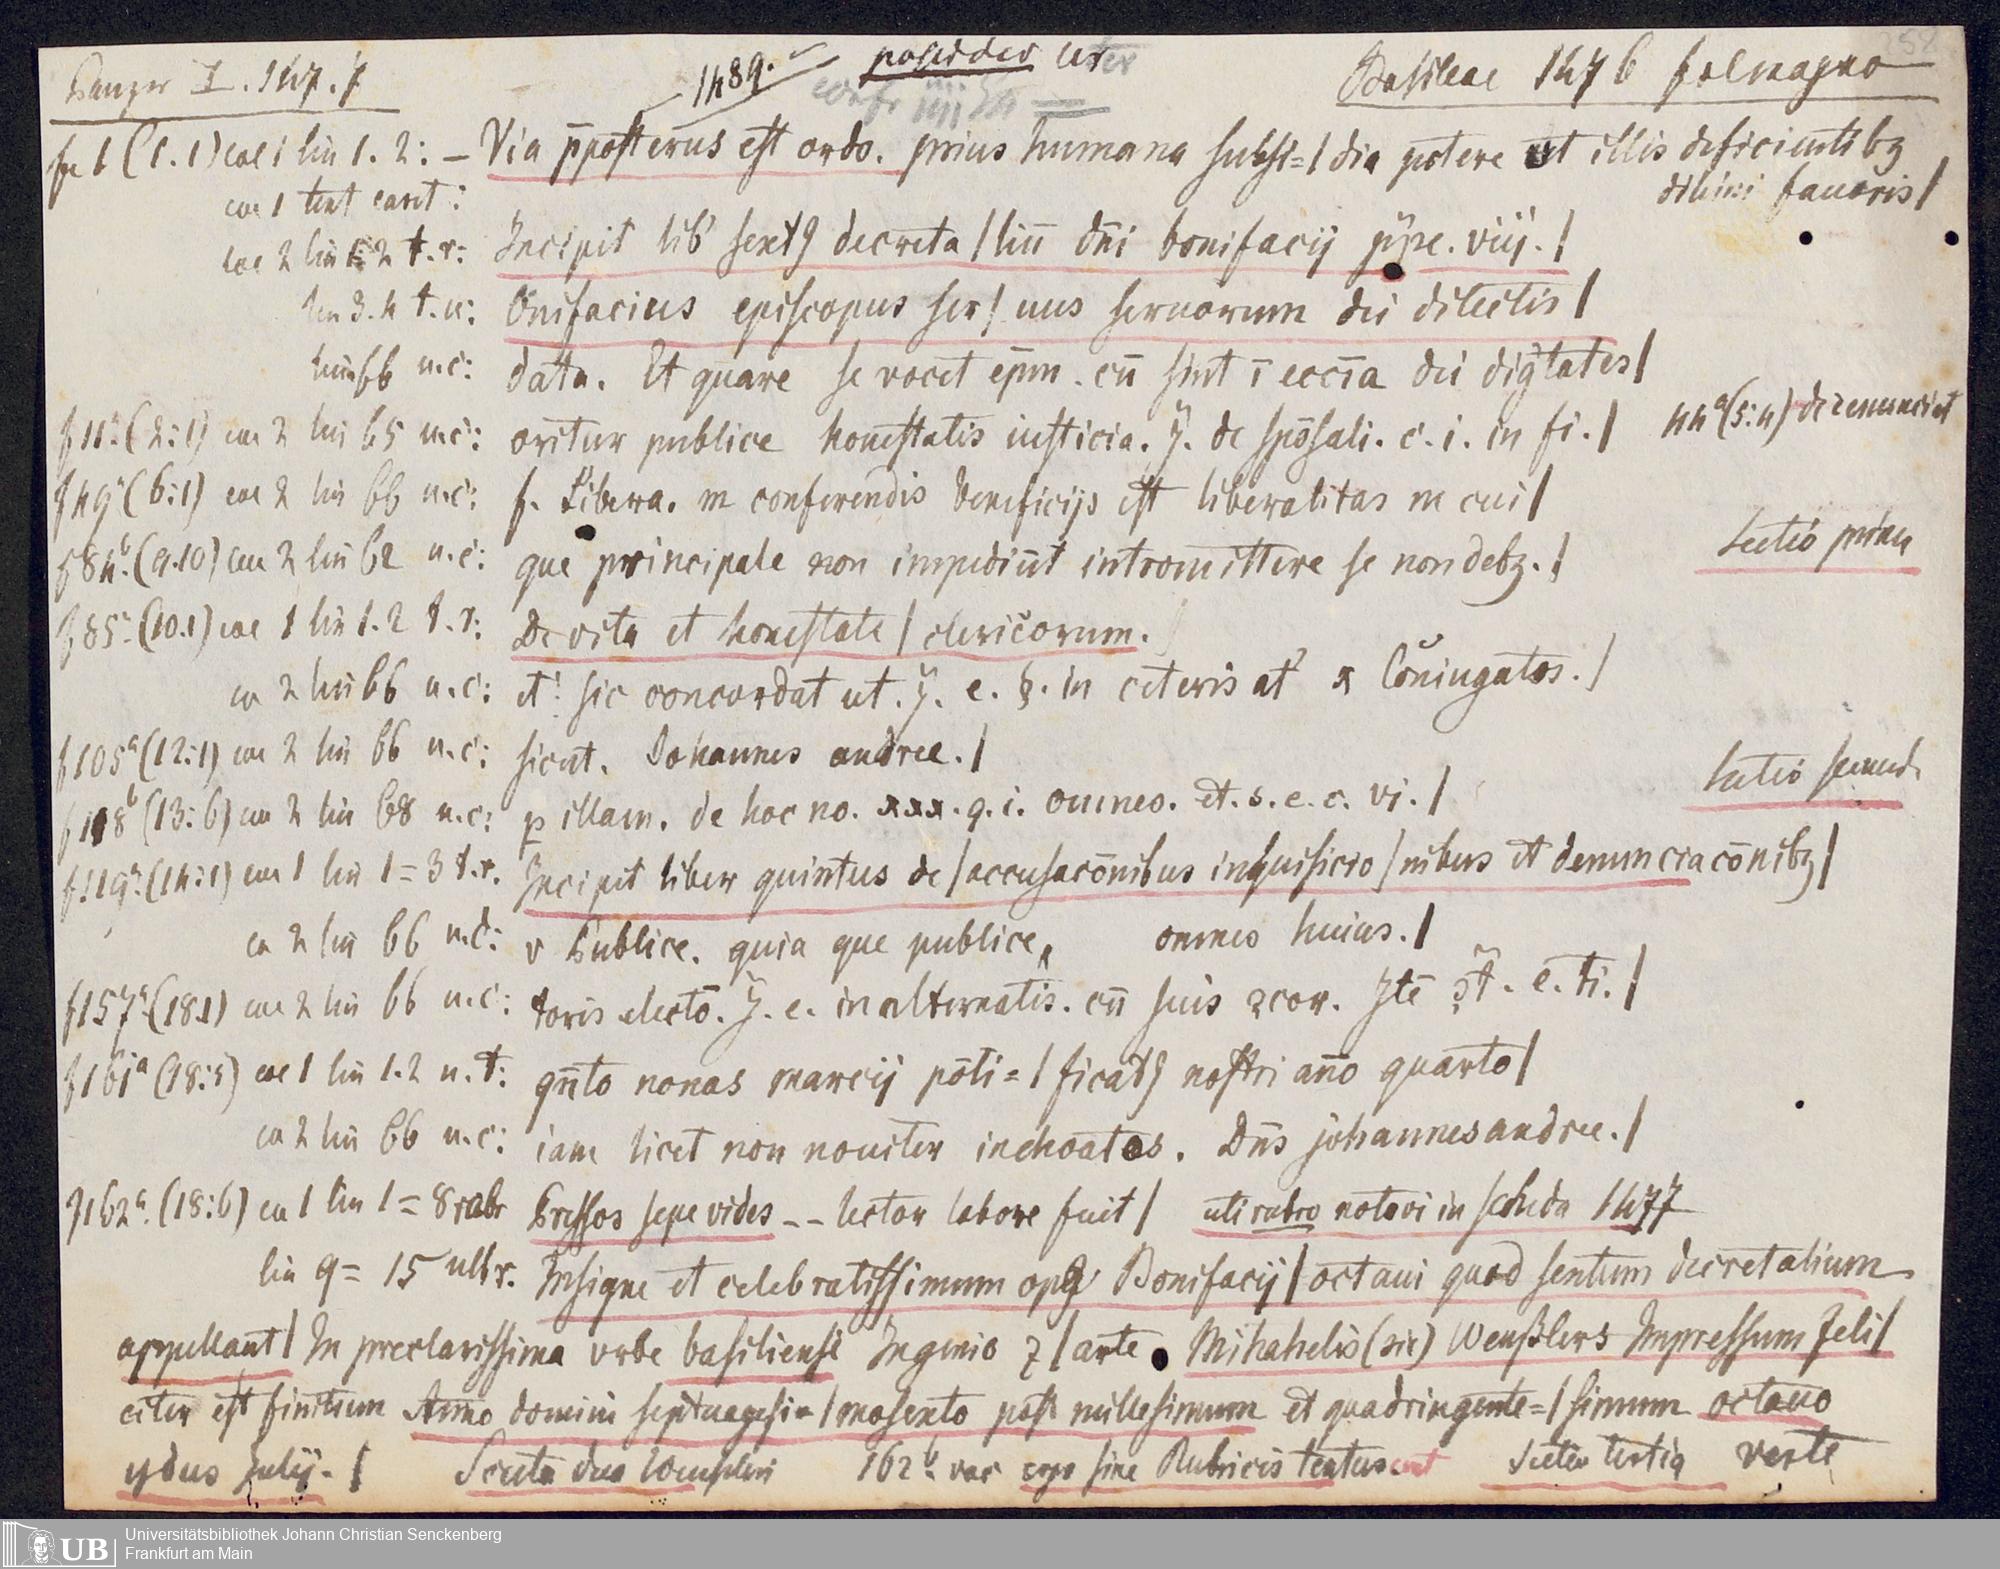 Panzer I. 147. 7 1489. possideo Basileae 1476 fol magno
col 1 lin 1. 2: – Via p̄posterus est ordo. prius humana subsi=/dia petere ut illis deficientibꝫ
col 1 text caret: diuini fauoris/
col 2 lin 1=2 t.r: Incipit lib' sextꝰ decreta/liū dn̄i bonifacij ppe. viij./
lin 3. 4 t.u: Onifacius episcopus ser/uus seruorum dei dilectis/
lin 66 u.c: data. Et quare se vocet ep̄m. cū sint ī ecc̄ia dei dig̃tates/
f 11ᵃ (2:1) col 2 lin 65 u.c: oritur publice honestatis iusticia. j. de spōsali. c. i. in fi./ 44ᵃ (5:4) de renunciat
f 49ᵃ (6:1) col 2 lin 66 u.c: f. Libera. in conferendis beneficijs est liberalitas in cui/
f 84ᵇ (9.10) col 2 lin 62 u.c: que principale non impediūt intromittere se non debꝫ./ Sectio prima
f 85ᵃ (10.1) col 1 lin 1.2 t.r: De vita et honestate/clericorum.
co 2 lin 66 u.c: et' sic concordat ut. j. e. §. in ceteris at' x Cōniugatos./
f 105ᵃ (12:1) col 2 lin 66 u.c: sicut. Johannes andree./
f 118ᵇ (13:6) col 2 lin 68 u.c: p illam. de hoc no. xxx. q. i. omnes. et. s. e. c. vi./ Sectio secund
f 119ᵃ (14:1) col 1 lin 1=3 t.r. Incipit liber quintus de/accusacōnibus inquisicio/nibus et denunciacōnibꝫ/
co 2 lin 66 u.c: v Publice. quia que publice, omnes huius./
f 157ᵃ (18.1) col 2 lin 66 u.c: toris electo. j. e. in alternatis. cū suis ꝯcor. Itē e. ti./
f 161ᵃ (18:5) col 1 lin 1.2 u.t: qn̄to nonas marcij pōti=/ficatꝰ nostri an̄o quarto/
co 2 lin 66 u.c: iam licet non nouiter inchoatos. Dn̄s johannes andree./
f 162ᵃ (18:6) co 1 lin 1=8 rubr Pressos sepe vides -- lector labore fuit/ uti rubro notavi in scheda 1477
lin 9= 15 ubr. Insigne et celebratissimum opꝰ Bonifacij/octaui quod sextum decretalium
appellant/In preclarissima vrbe basiliensi Ingenio ⁊/arte. Mihahelis (sic) Wenßlers Impressum feli/
citer est finitum Anno domini septuagesi=/mosexto post millesimum et quadringente=/simum octauo
ydus Julij./ Scuta duo Wenssleri 162ᵇ vac ergo sine Rubricis textus Sectio tertia verte
UB Universitätsbibliothek Johann Christian Senckenberg
Frankfurt am Main